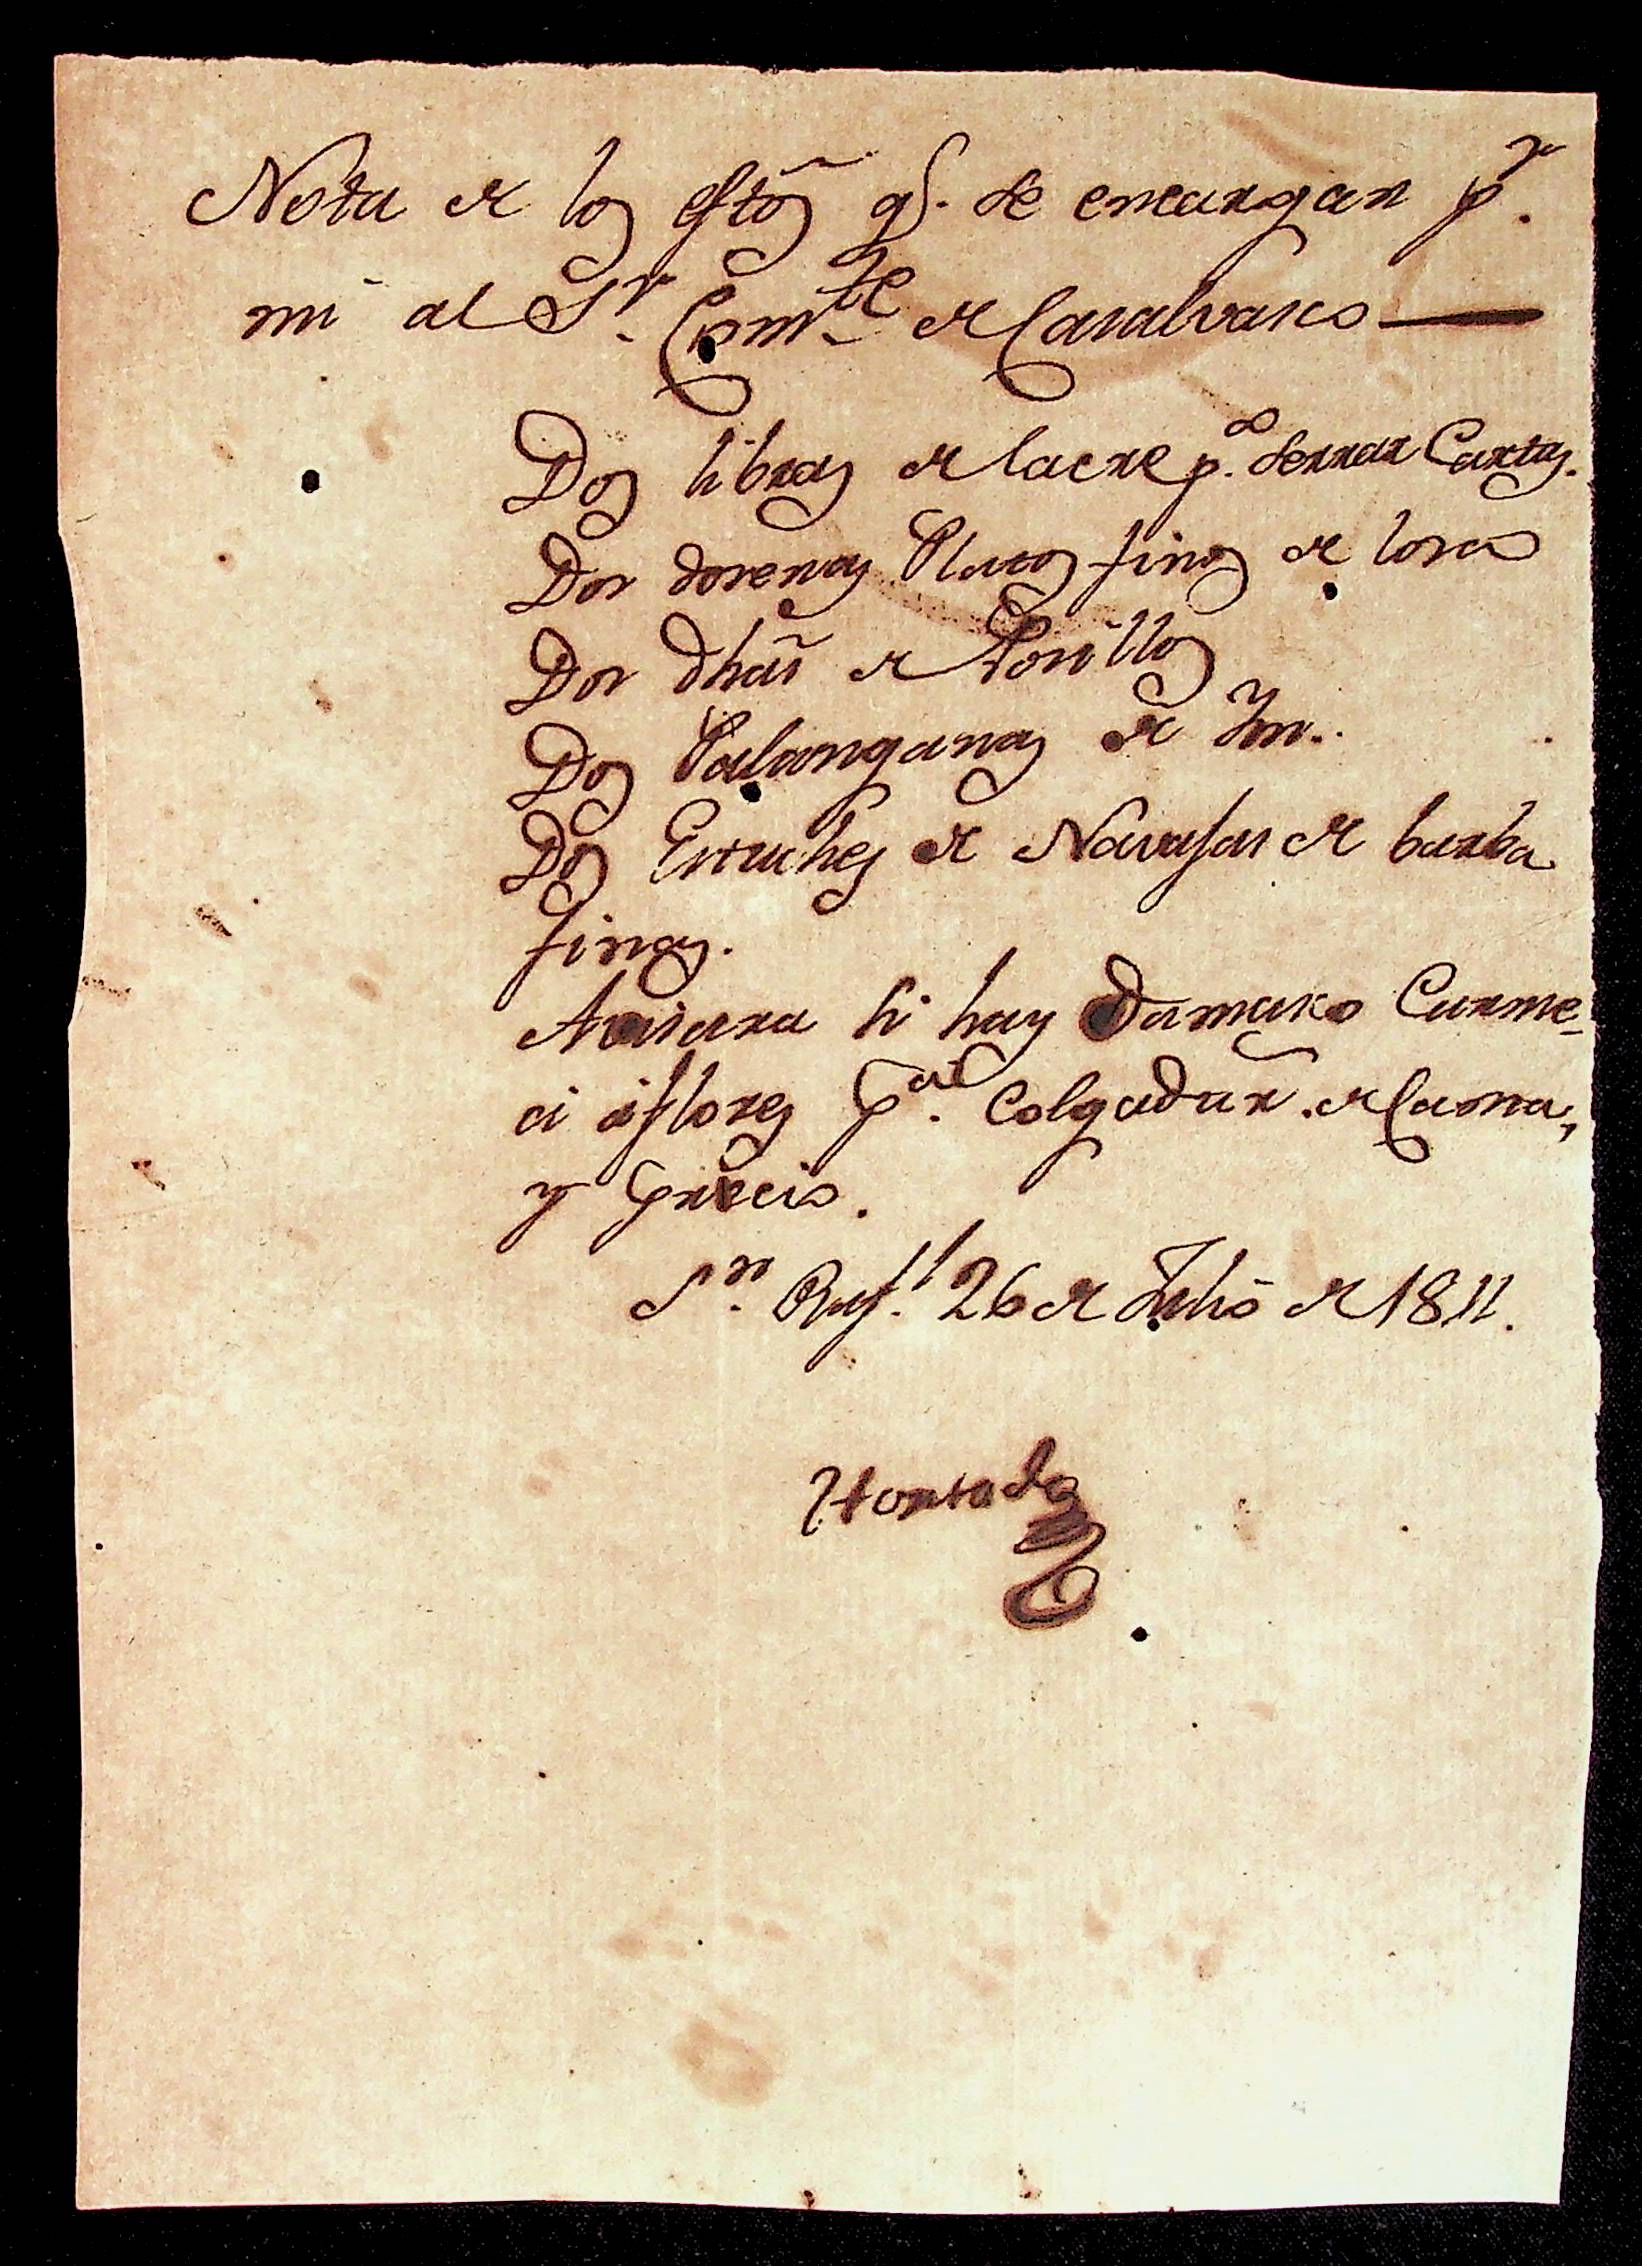 Nota de los eftõs q.e se encargan p.r
mi al S.r Com.te de Casalvasco
Dos libras de lacre p.a serrar Cartas.
Dos dosenas Platos finos de losa
Dos dhas de Posillos
Dos Palanganas de Ym.
Dos Estuches de Navajas de barba
finas.
Avisara si hay Damasco Carme-
ci áflores p.a Colgadar de Cama,
y Precio.
S.n Raf.l 26 de Julio de 1811.
Hurtado